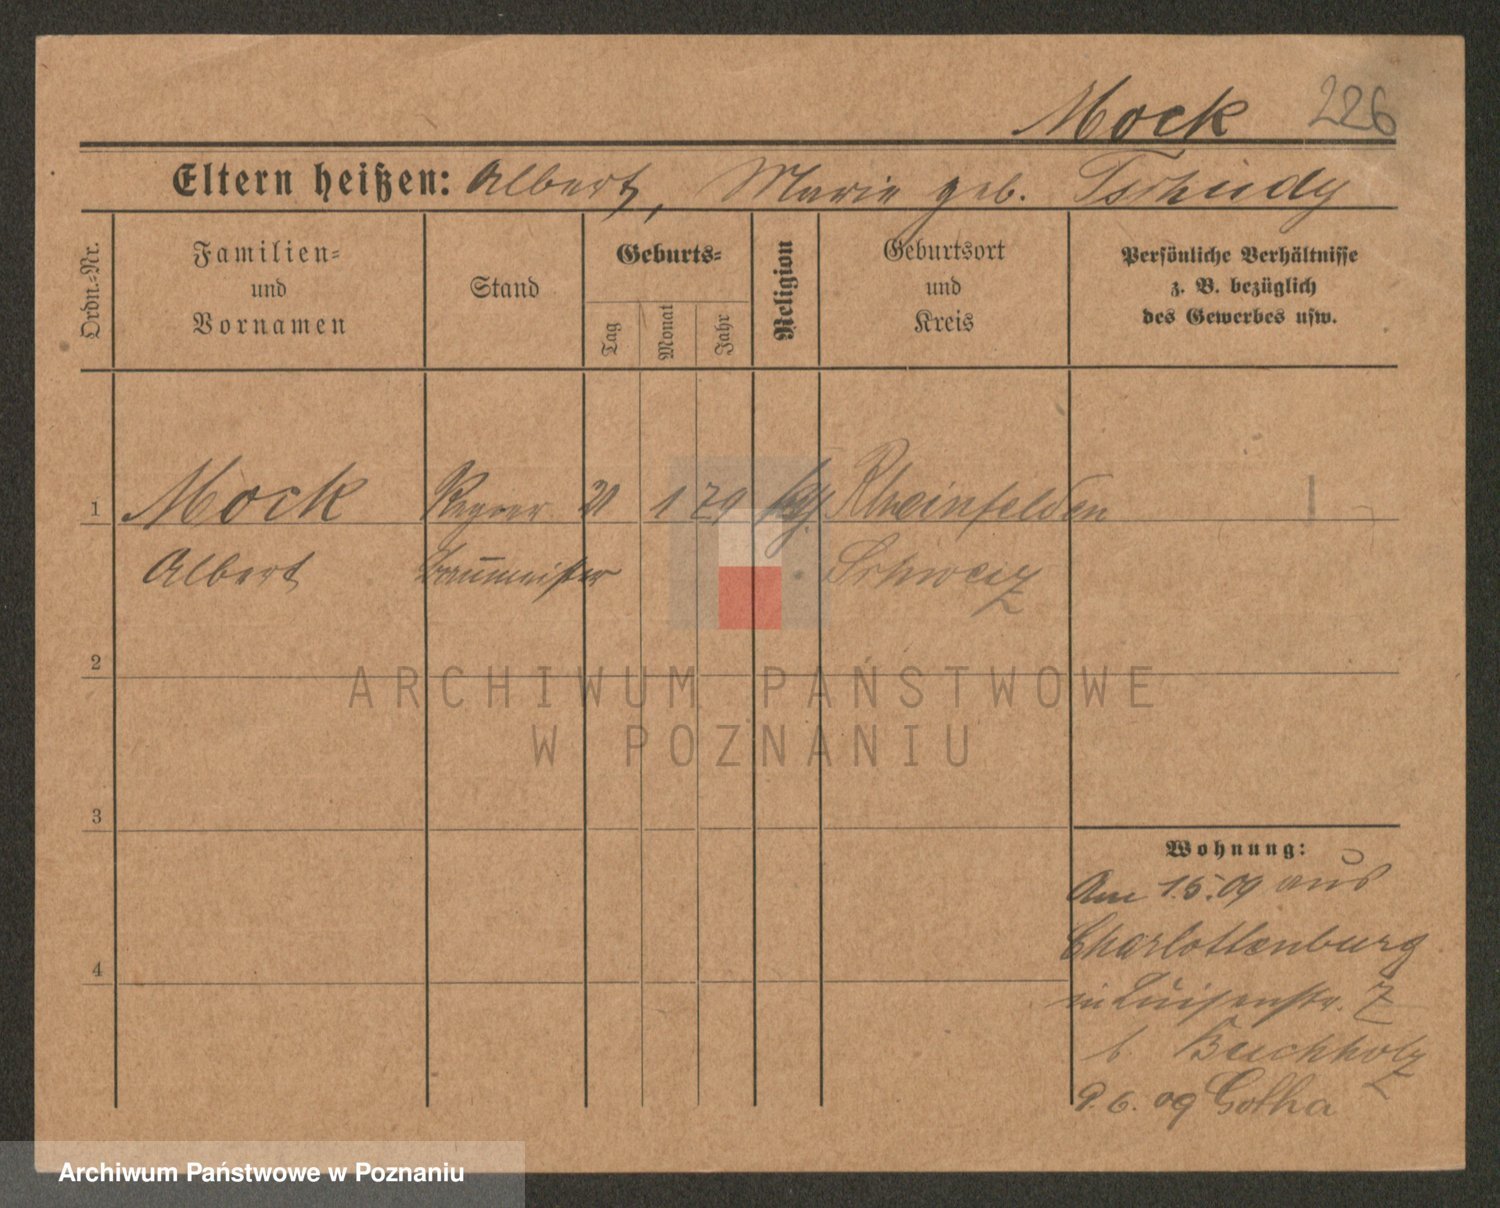 Mock 226
Eltern heißen: Albert, Marie geb. Tschudy
Ordn.-Nr.
Familien-
und
Vornamen
Stand
Geburts-
Tag
Monat
Jahr
Religion
Geburtsort
und
Kreis
Persönliche Verhältnisse
z. B. bezüglich
des Gewerbes usw.
1 Mock 21 1 79 Rheinfelden
Albert Baumeister Schweiz
2
ARCHIWUM PAŃSTWOWE
W POZNANIU
3
Wohnung:
Am 1.5.09 aus
Charlottenburg
4
in Luisenstr. 7
b. Buchholz
9.6.09 Gotha
Archiwum Państwowe w Poznaniu